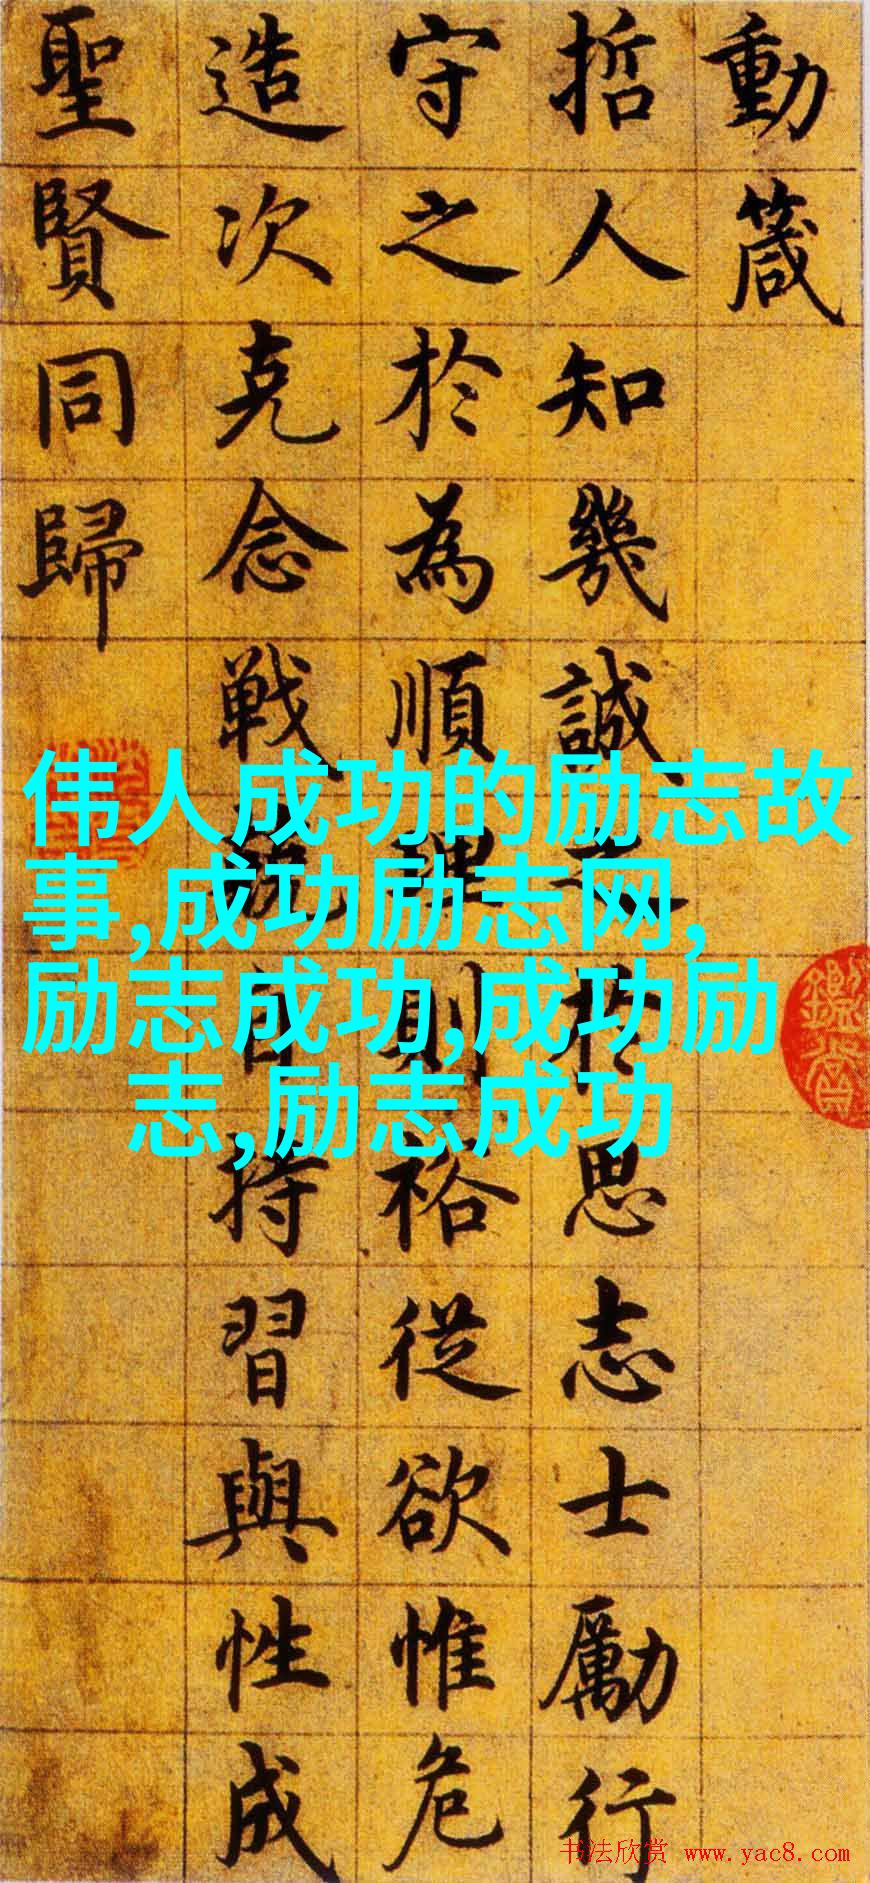 動箴
哲人知幾誠之於思志士勵行
守之於為順理則裕從欲惟危
造次克念戰兢自持習與性成
聖賢同歸
伟人成功的励志故
事,成功励志网,
励志成功,成功励
志,励志成功
书法欣赏 www.yac8.com